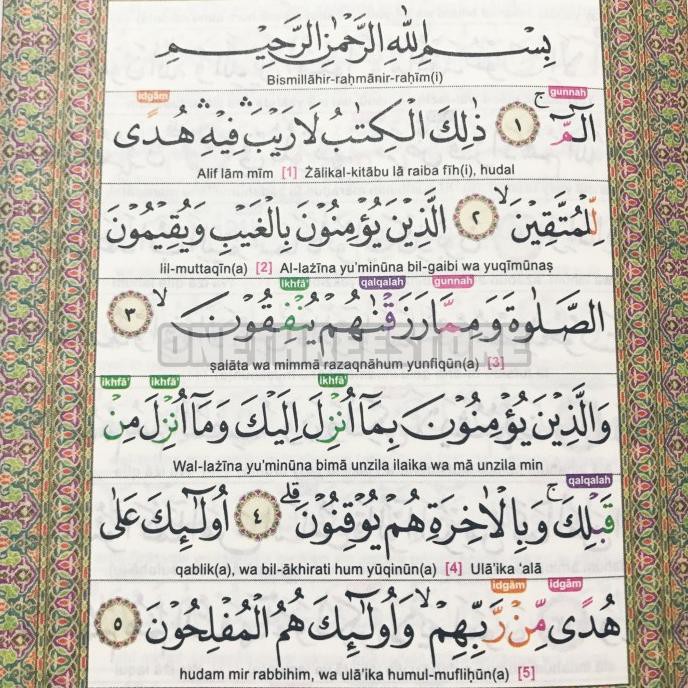 بِسْمِ اللّٰهِ الرَّحْمٰنِ الرَّحِيْمِ
Bismillāhir-raḥmānir-raḥīm(i)
idgām gunnah
الۤمّۤ ۚ ١ ذٰلِكَ الْكِتٰبُ لَا رَيْبَ ۛ فِيْهِ ۛ هُدًى
Alif lām mīm [1] Żālikal-kitābu lā raiba fīh(i), hudal
لِّلْمُتَّقِيْنَ ۙ ٢ الَّذِيْنَ يُؤْمِنُوْنَ بِالْغَيْبِ وَيُقِيْمُوْنَ
lil-muttaqīn(a) [2] Al-lażīna yu’minūna bil-gaibi wa yuqīmūnaṣ
ikhfā’ qalqalah gunnah
الصَّلٰوةَ وَمِمَّا رَزَقْنٰهُمْ يُنْفِقُوْنَ ۙ ٣
ṣalāta wa mimmā razaqnāhum yunfiqūn(a) [3]
ikhfā’ ikhfā’ ikhfā’
وَالَّذِيْنَ يُؤْمِنُوْنَ بِمَآ اُنْزِلَ اِلَيْكَ وَمَآ اُنْزِلَ مِنْ
Wal-lażīna yu’minūna bimā unzila ilaika wa mā unzila min
qalqalah
قَبْلِكَ ۚ وَبِالْاٰخِرَةِ هُمْ يُوْقِنُوْنَ ۗ ٤ اُولٰۤىِٕكَ عَلٰى
qablik(a), wa bil-ākhirati hum yūqinūn(a) [4] Ulā’ika ‘alā
idgām idgām
هُدًى مِّنْ رَّبِّهِمْ ۙ وَاُولٰۤىِٕكَ هُمُ الْمُفْلِحُوْنَ ٥
hudam mir rabbihim, wa ulā’ika humul-mufliḥūn(a) [5]